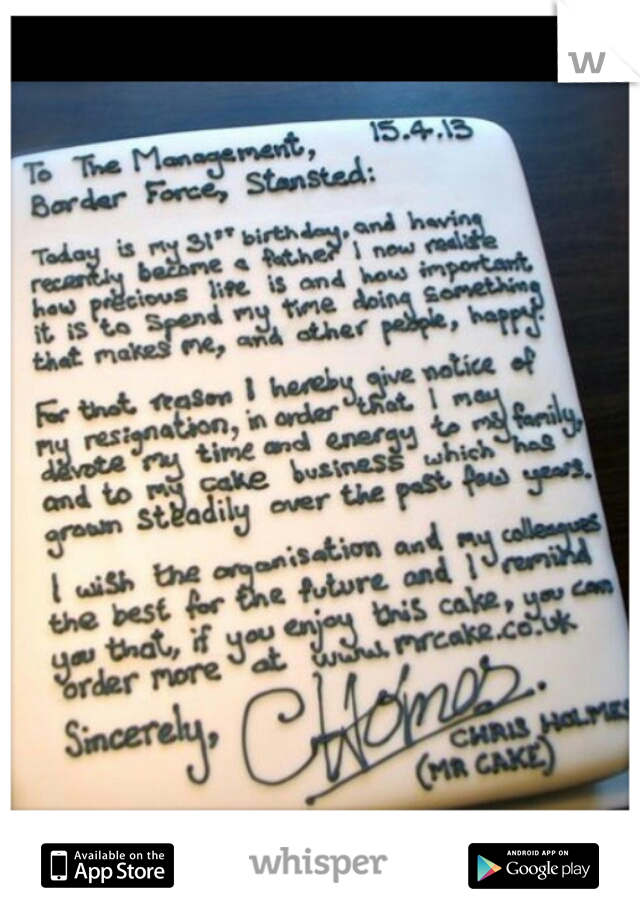 w
15.4.13
To The Management,
Border Force, Stansted:
Today is my 31ST birthday, and having
recently become a father I now realise
how precious life is and how important
it is to spend my time doing something
that makes me, and other people, happy.
For that reason I hereby give notice of
my resignation, in order that I may
devote my time and energy to my family,
and to my cake business which has
grown steadily over the past few years.
I wish the organisation and my colleagues
the best for the future and I remind
you that, if you enjoy this cake, you can
order more at www.mrcake.co.uk
Sincerely, CHolmes.
CHRIS HOLMES
(MR CAKE)
Available on the
App Store
whisper
ANDROID APP ON
Google play